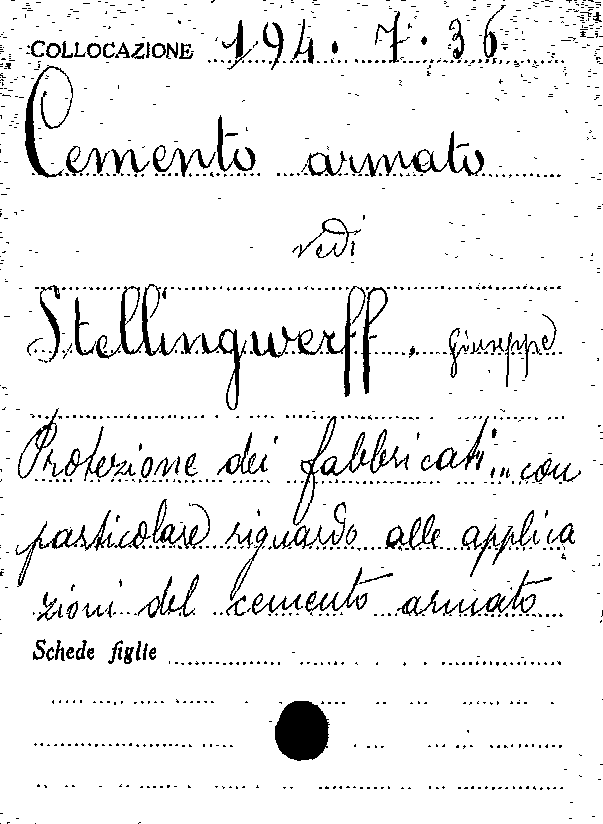 COLLOCAZIONE 194. 7. 36
Cemento armato
vedi
Stellingwerff. Giuseppe
Protezione dei fabbricati... con
particolare riguardo alle applica
zioni del cemento armato
Schede figlie